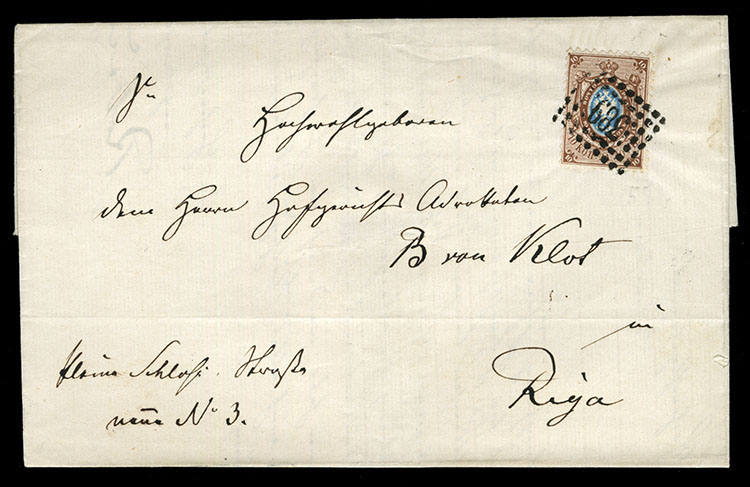 Sr
Hochwohlgeboren
dem Herrn Hofgerichts Advokaten
B von Klot
in
Riga
kleine Schloß. Straße
neue No 3.